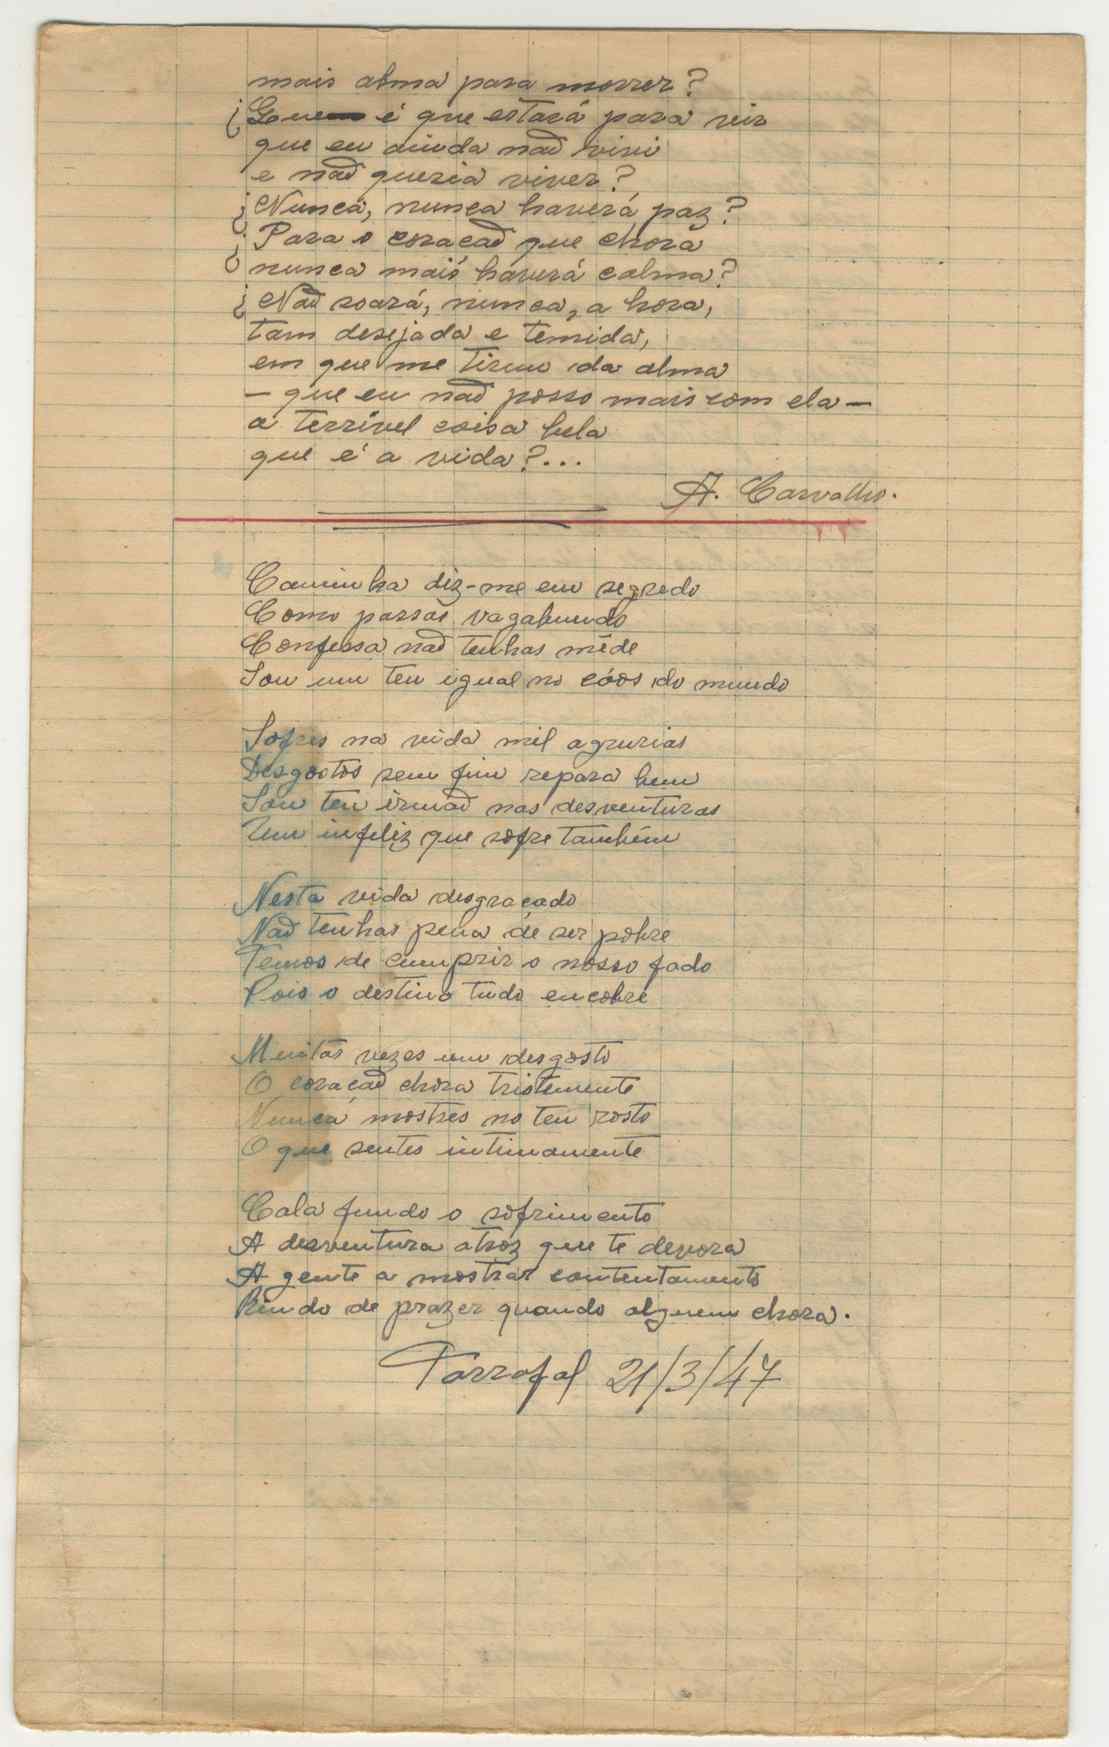 mais alma para morrer?
¿Que é que estará para vir
que eu ainda não vivi
e não queria viver?
¿Nunca, nunca haverá paz?
¿Para o coração que chora
nunca mais haverá calma?
¿Não soará, nunca, a hora,
tam desejada e temida,
em que me tirem da alma
— que eu não posso mais com ela —
a terrível coisa bela
que é a vida?...
A. Carvalho.
Caminha diz-me em segredo
Como passas vagabundo
Confessa não tenhas mêde
Sou um teu igual no cáos do mundo
Sofres na vida mil agrurias
Desgostos sem fim repara bem
Sou teu irmão nas desventuras
Um infeliz que sofre também
Nesta vida desgraçado
Não tenhas pena de ser pobre
Temos de cumprir o nosso fado
Pois o destino tudo encobre
Muitas vezes um desgosto
O coração chora tristemente
Nunca mostres no teu rosto
O que sentes intimamente
Cala fundo o sofrimento
A desventura atroz que te devora
A gente a mostrar contentamento
Rindo de prazer quando alguem chora.
Tarrafal 21/3/47